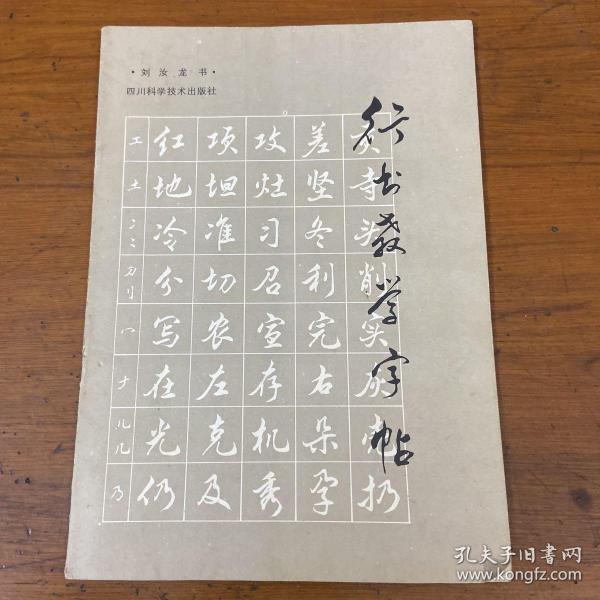 ·刘汝龙书·
四川科学技术出版社
行书教学字帖
工 红 项 攻 差
土 地 坦 灶 坚 寺
冫 冷 准 习 冬 头
刀 刂 分 切 召 利 削
冖 写 农 宣 完 实
ナ 在 左 存 右 灰
儿 几 光 克 机 朵
乃 仍 及 秀 孕 扔
孔夫子旧书网
www.kongfz.com